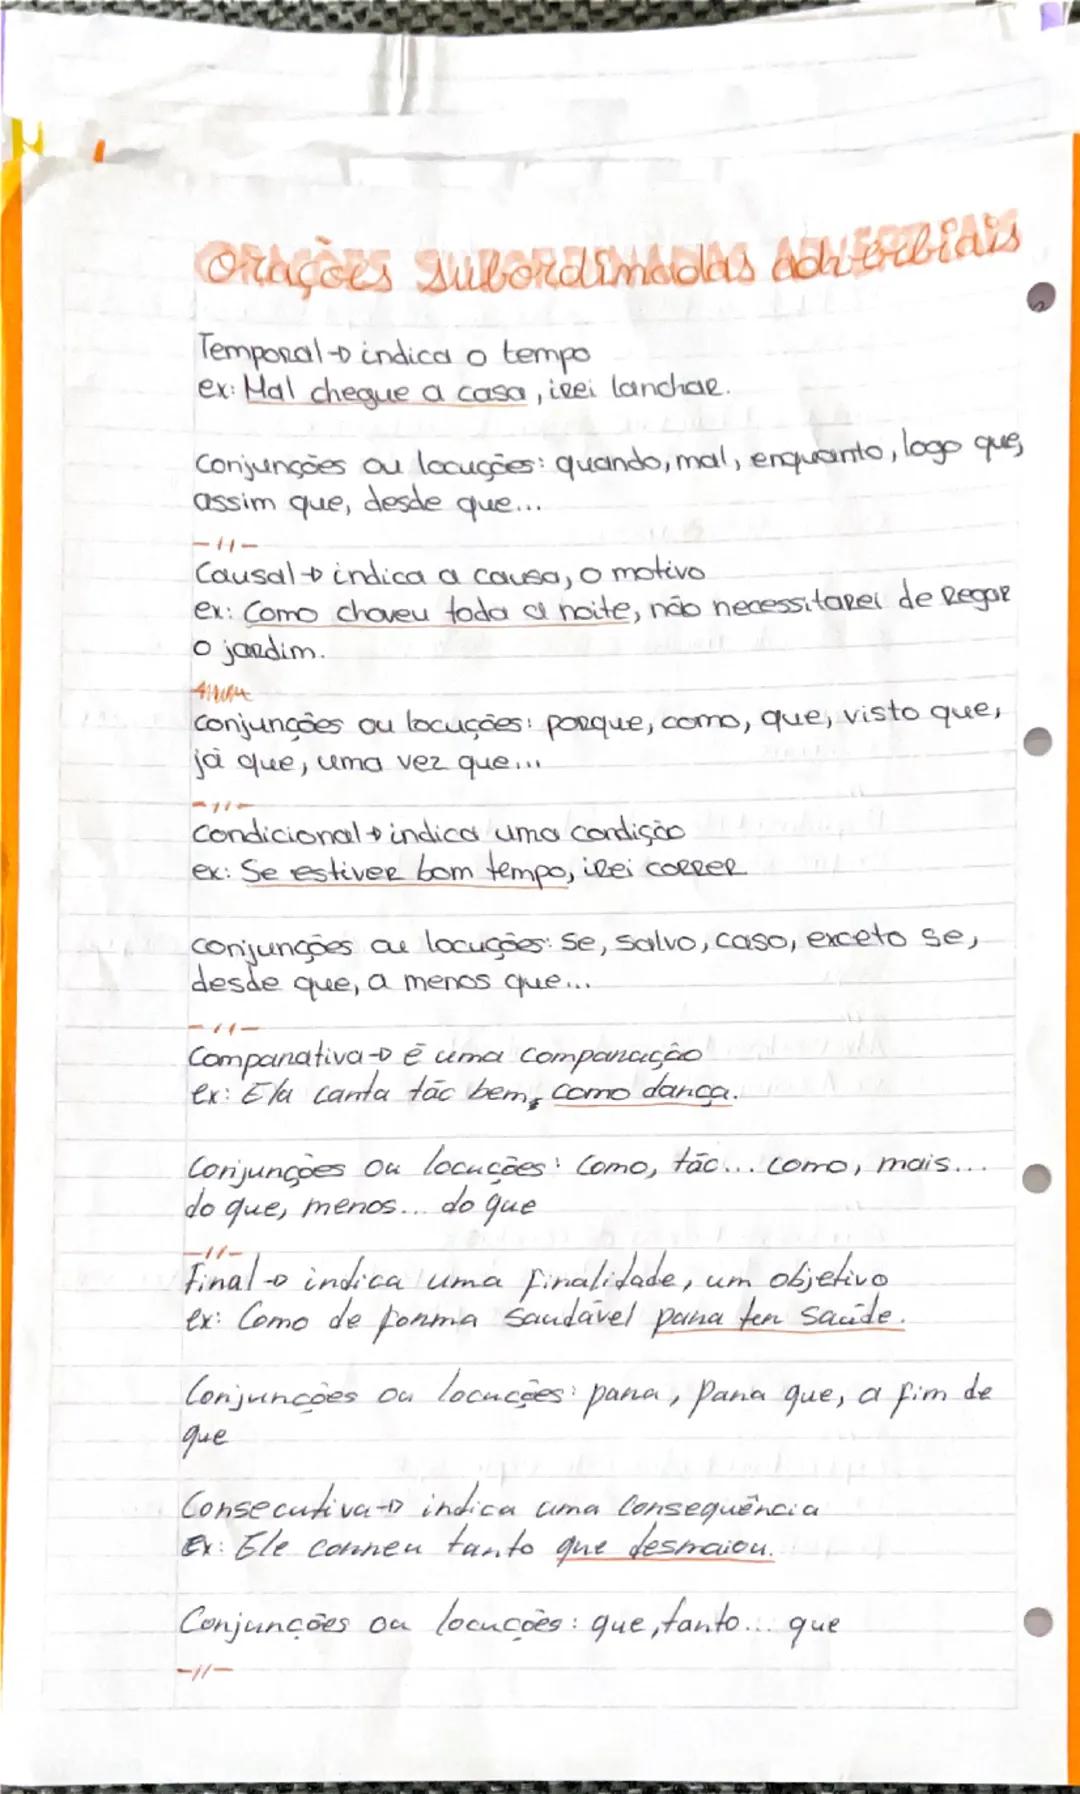 Orações subordinadas adverbiais
Temporal → indica o tempo
ex: Mal chegue a casa, irei lanchar.
Conjunções ou locuções: quando, mal, enquanto, logo que,
assim que, desde que...
-//-
Causal → indica a causa, o motivo
ex: Como choveu toda a noite, não necessitarei de regar
o jardim.
conjunções ou locuções: porque, como, que, visto que,
já que, uma vez que...
-//-
Condicional → indica uma condição
ex: Se estiver bom tempo, irei correr
conjunções ou locuções: se, salvo, caso, exceto se,
desde que, a menos que...
-//-
Comparativa → é uma comparação
ex: Ela canta tão bem, como dança.
Conjunções ou locuções: Como, tão... como, mais...
do que, menos... do que
-//-
Final → indica uma finalidade, um objetivo
ex: Como de forma saudável para ter saúde.
Conjunções ou locuções: para, para que, a fim de
que
Consecutiva → indica uma consequência
Ex: Ele correu tanto que desmaiou.
Conjunções ou locuções: que, tanto... que
-//-